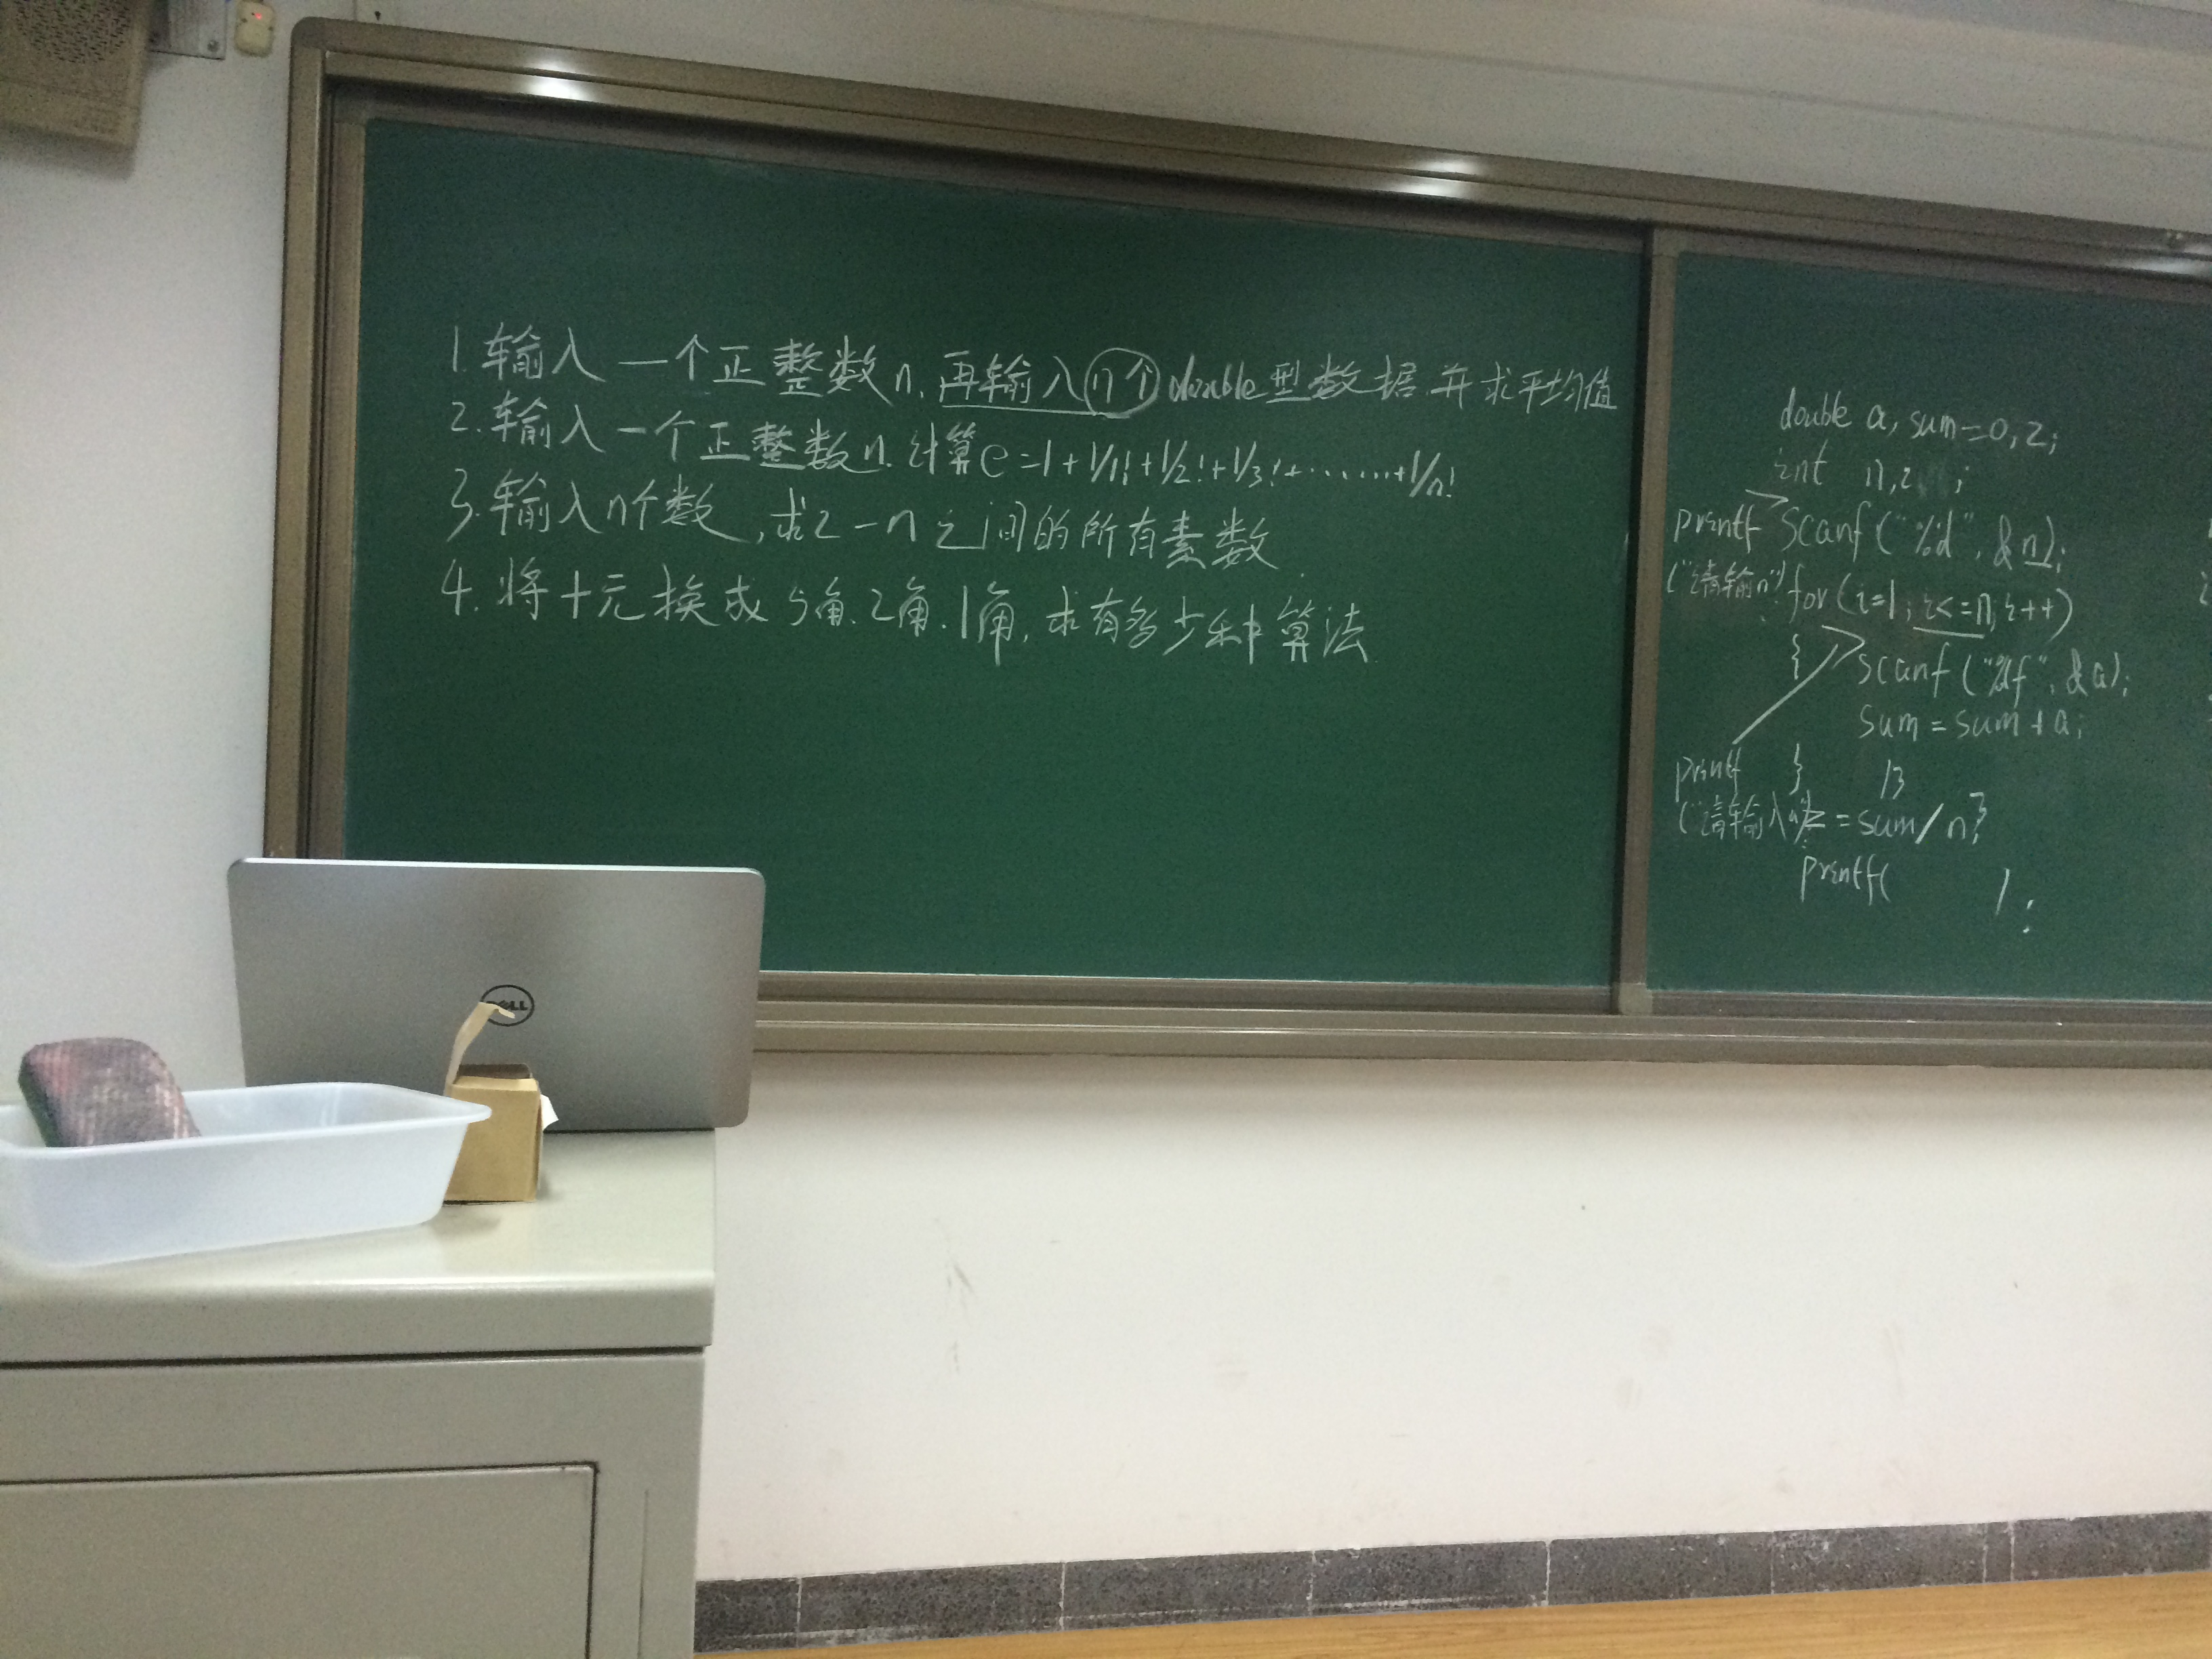 1.输入一个正整数n.再输入n个double型数据.并求平均值
2.输入一个正整数n.计算e=1+1/1!+1/2!+1/3!+……+1/n!
3.输入n个数,求2-n之间的所有素数
4.将十元换成5角.2角.1角,求有多少种算法
double a, sum=0, z;
int n,i;
printf scanf("%d", &n);
("请输n") for(i=1; i<=n; i++)
{ scanf("%lf", &a);
sum=sum+a;
printf }
("请输入a") z=sum/n;
printf( );
DELL